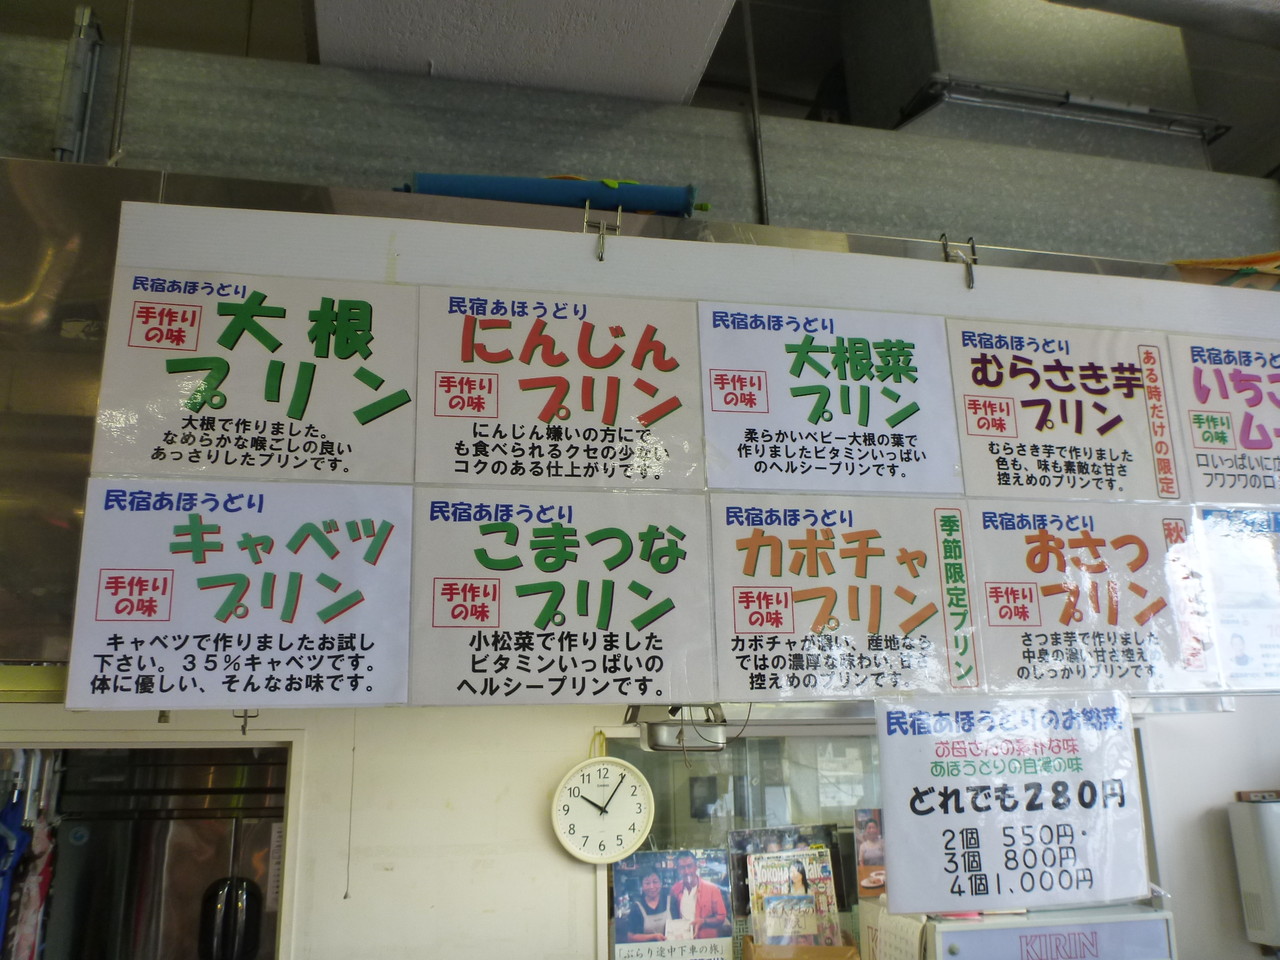 民宿あほうどり
手作り
の味
大根
プリン
大根で作りました。
なめらかな喉ごしの良い
あっさりしたプリンです。
民宿あほうどり
にんじん
手作り
の味
プリン
にんじん嫌いの方にで
も食べられるクセの少ない
コクのある仕上がりです。
民宿あほうどり
大根菜
手作り
の味
プリン
柔らかいベビー大根の葉で
作りましたビタミンいっぱい
のヘルシープリンです。
民宿あほうどり
むらさき芋
手作り
の味
プリン
ある時だけの限定
むらさき芋で作りました
色も、味も素敵な甘さ
控えめのプリンです。
民宿あほうど
いちご
手作り
の味
ムー
口いっぱいに広
フワフワの口
民宿あほうどり
キャベツ
手作り
の味
プリン
キャベツで作りましたお試し
下さい。35%キャベツです。
体に優しい、そんなお味です。
民宿あほうどり
こまつな
手作り
の味
プリン
小松菜で作りました
ビタミンいっぱいの
ヘルシープリンです。
民宿あほうどり
カボチャ
手作り
の味
プリン
季節限定プリン
カボチャが濃い、産地なら
ではの濃厚な味わい、甘さ
控えめのプリンです。
民宿あほうどり
おさつ
手作り
の味
プリン
秋
さつま芋で作りました
中身の濃い甘さ控えめ
のしっかりプリンです。
民宿あほうどりのお総菜
お母さんの素朴な味
あほうどりの自慢の味
どれでも280円
2個 550円・
3個 800円
4個1,000円
12
1
2
3
4
5
6
7
8
9
10
11
「ぶらり途中下車の旅」
KIRIN